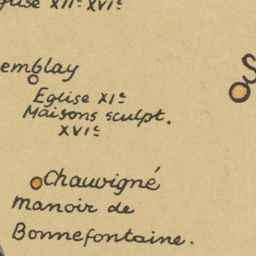 glise XIIᵉ XVIᵉ
emblay
Eglise XIᵉ
Maisons sculpt.
XVIᵉ
S
Chauvigné
Manoir de
Bonnefontaine.